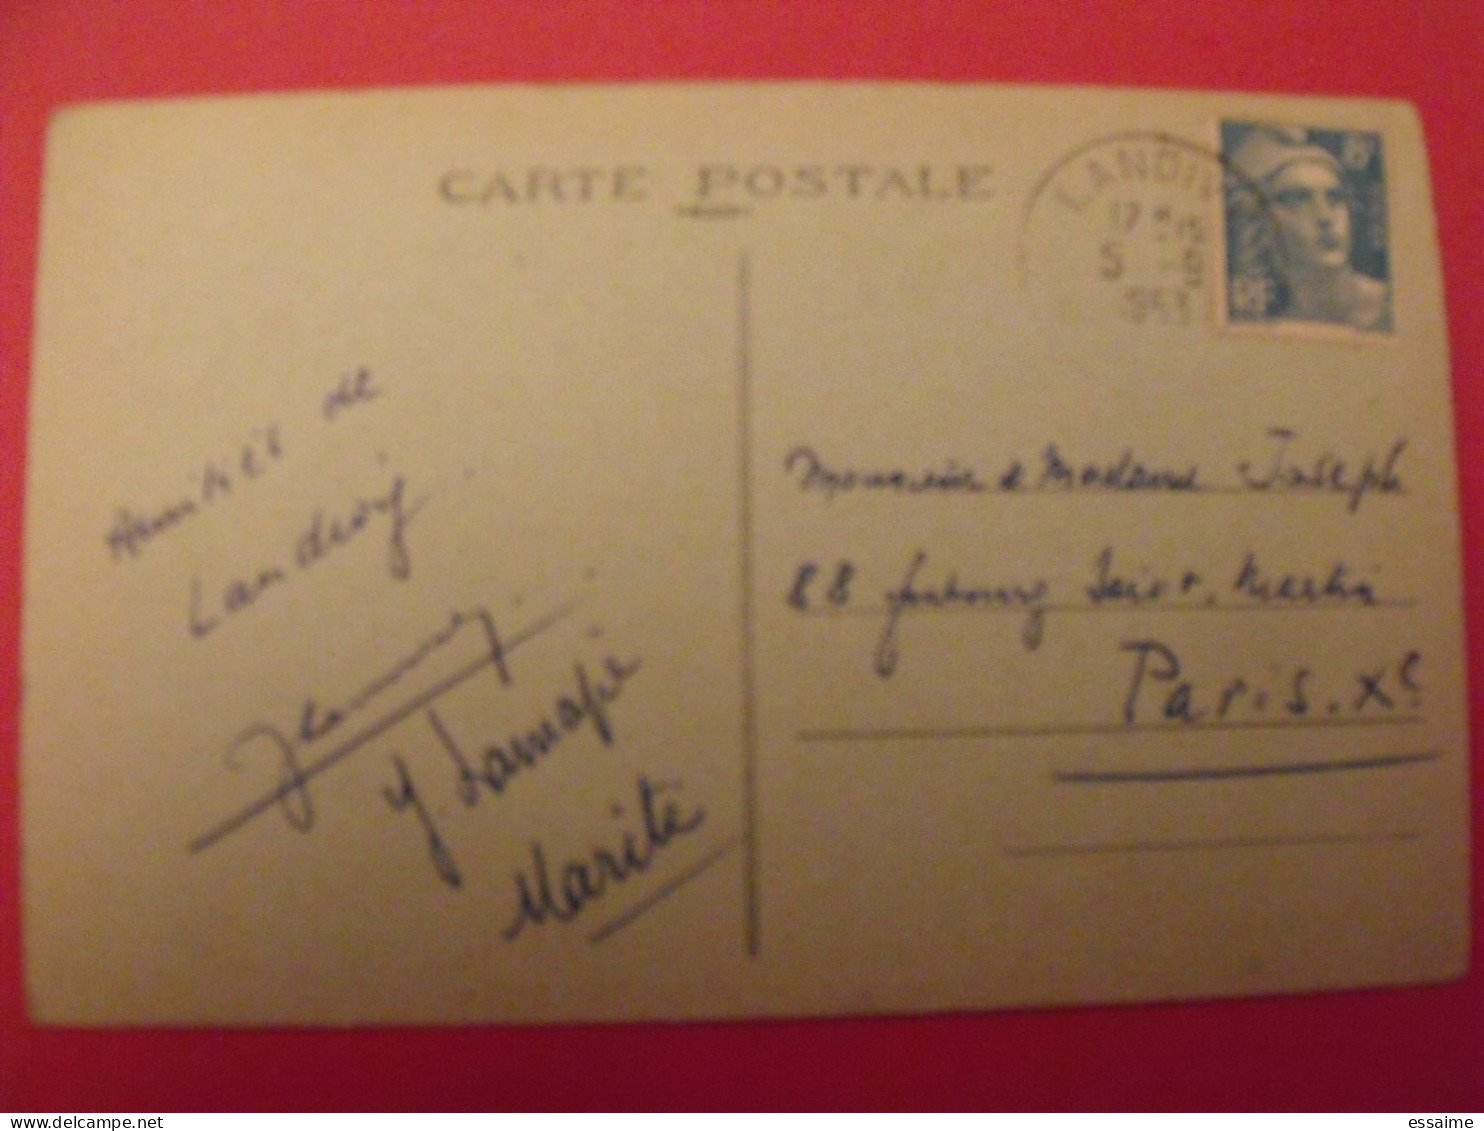 CARTE POSTALE
LANDIV
17
5
8F
RF
Amitiés de
Landivy
Y Lammapé
Marité
Monsieur & Madame Joseph
88 faubourg Saint. Martin
Paris. Xe
delcampe.net
essaime